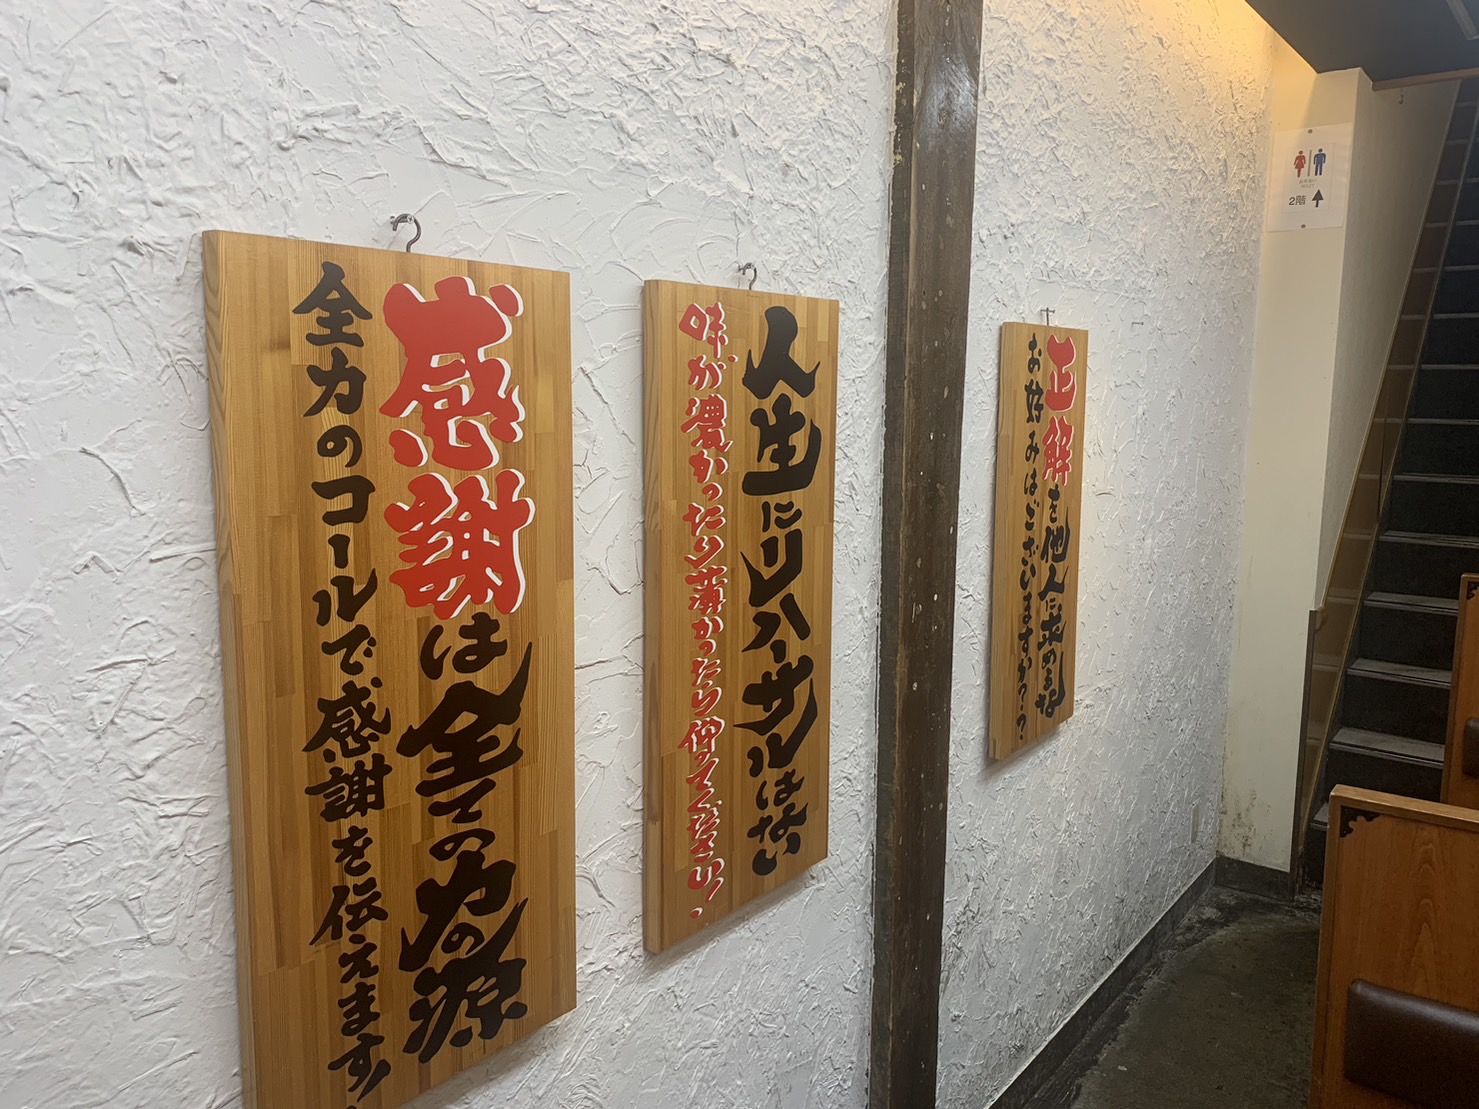 感謝は全ての力の源
全力のコールで感謝を伝えます!
人生にリハーサルはない
味が濃かったり薄かったら仰ってください!
正解を他人に求めるな
お好みはございますか?
2階